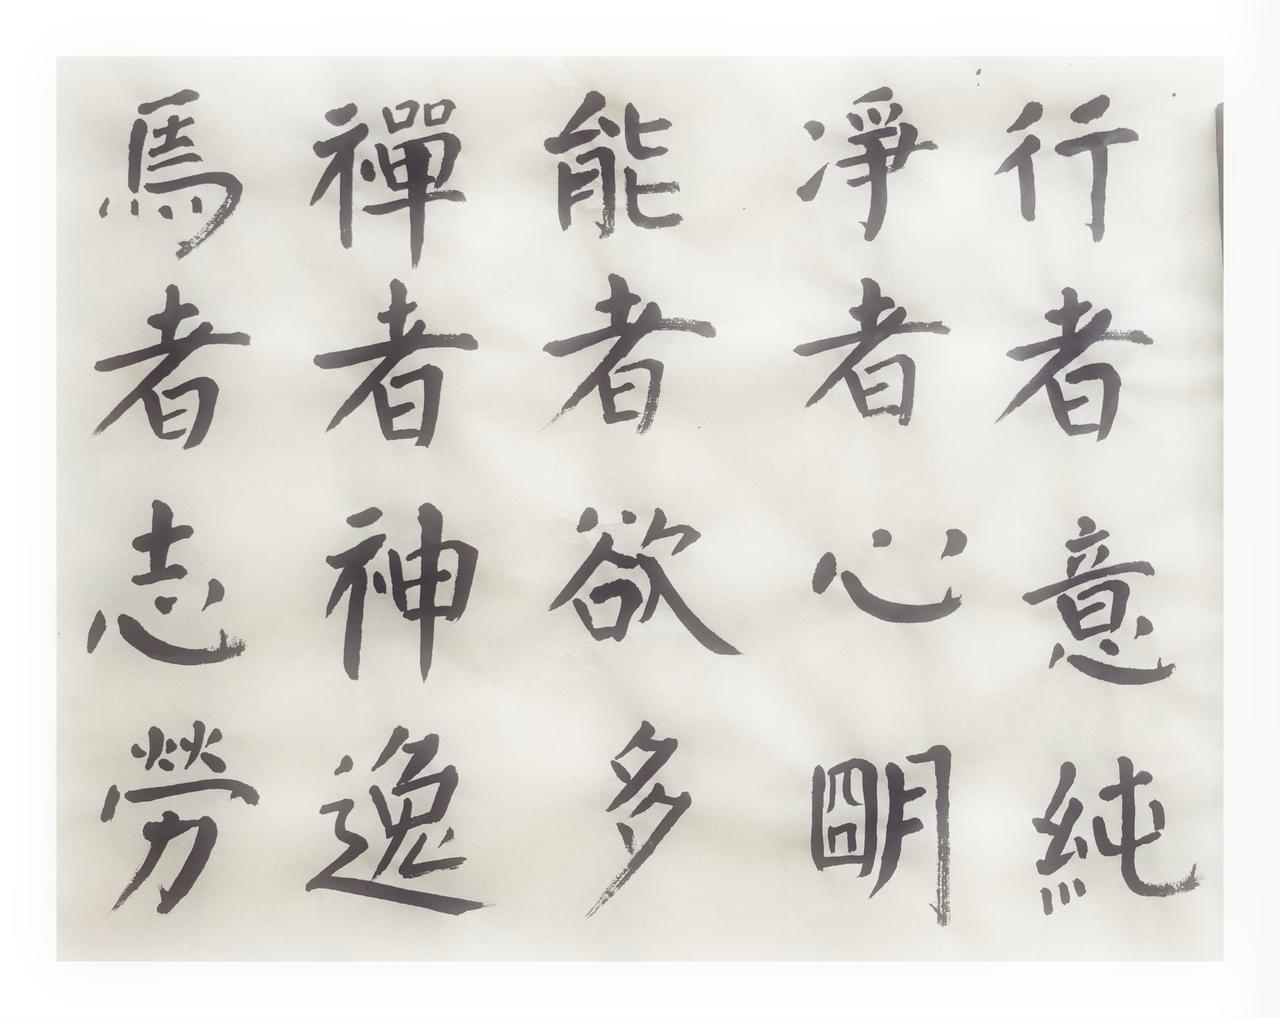 行者意純
淨者心朙
能者欲多
禪者神逸
馬者志勞